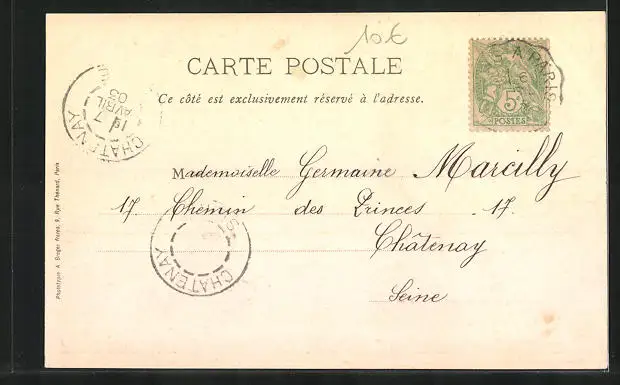 10€
CARTE POSTALE
Ce côté est exclusivement réservé à l'adresse.
5c
POSTES
A PARIS
CHATENAY
7
AVRIL
03
Mademoiselle Germaine Marcilly
17. Chemin des Princes 17.
Châtenay
Seine
CHATENAY
Phototypie A. Breger Frères, 9, Rue Thénard, Paris